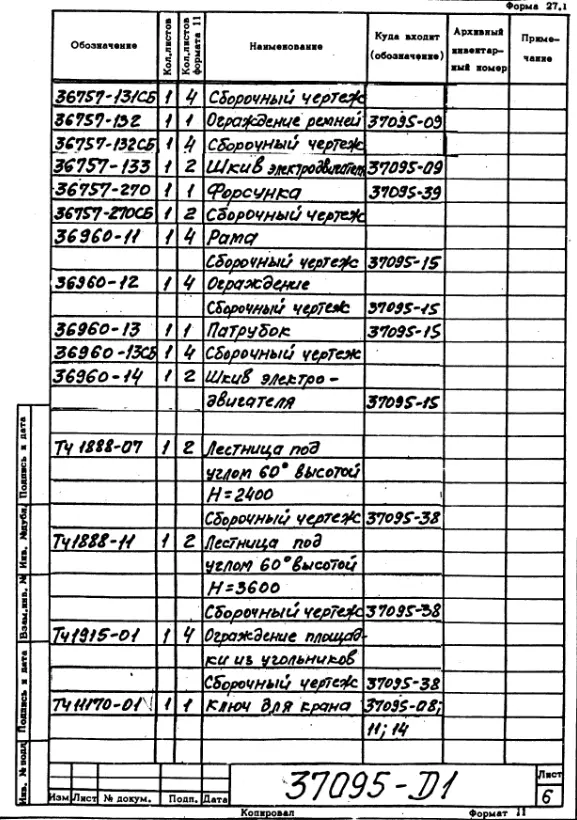 Форма 27.1
Обозначение | Кол.листов | Кол.листов формата 11 | Наименование | Куда входит (обозначение) | Архивный инвентар-ный номер | Приме-чание
36757-131СБ 1 4 Сборочный чертеж
36757-132 1 1 Ограждение ремней 37095-09
36757-132СБ 1 4 Сборочный чертеж
36757-133 1 2 Шкив электродвигателя 37095-09
36757-270 1 1 Форсунка 37095-39
36757-270СБ 1 2 Сборочный чертеж
36960-11 1 4 Рама
Сборочный чертеж 37095-15
36960-12 1 4 Ограждение
Сборочный чертеж 37095-15
36960-13 1 1 Патрубок 37095-15
36960-13СБ 1 4 Сборочный чертеж
36960-14 1 2 Шкив электро-
двигателя 37095-15
ТЧ 1888-07 1 2 Лестница под
углом 60° высотой
Н=2400
Сборочный чертеж 37095-38
ТЧ1888-11 1 2 Лестница под
углом 60° высотой
Н=3600
Сборочный чертеж 37095-38
ТЧ1915-01 1 4 Ограждение площад-
ки из угольников
Сборочный чертеж 37095-38
ТЧ11170-01 1 1 Ключ для крана 37095-08;
11; 14
Инв. № подл Подпись и дата Взам.инв. № Инв. №дубл. Подпись и дата
Изм Лист № докум. Подп. Дата
37095-D1
Лист
6
Копировал Формат 11